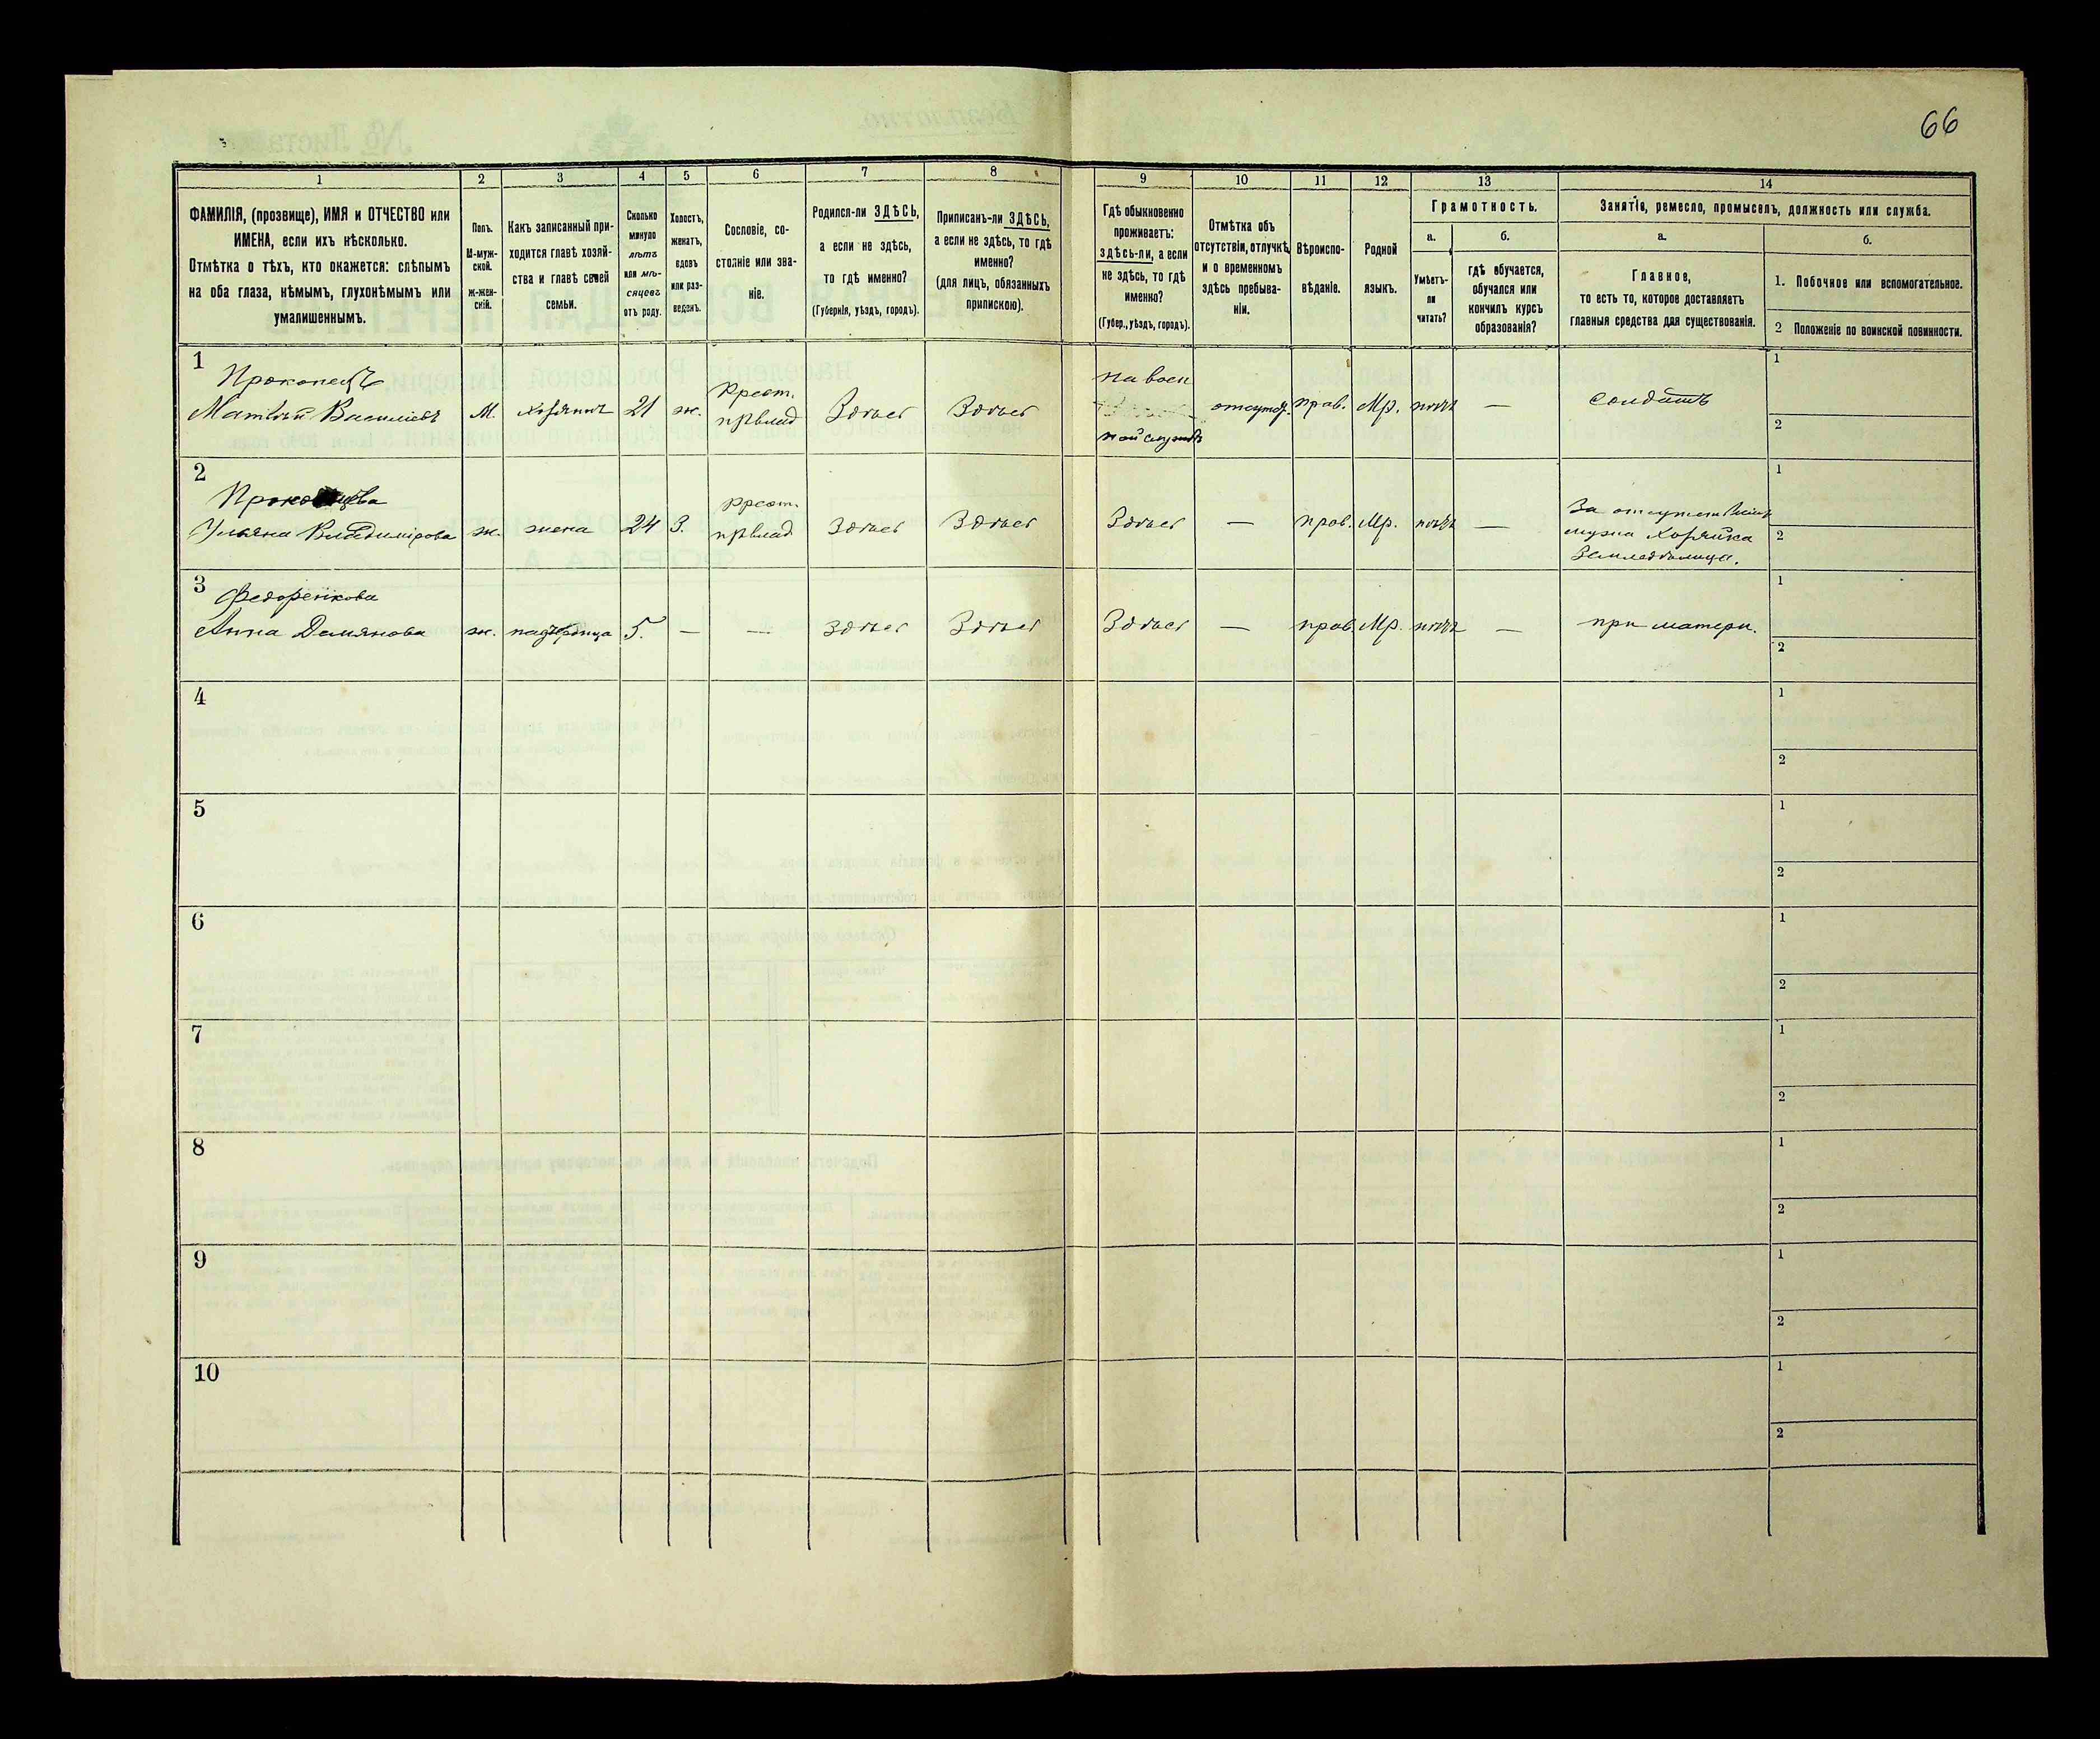 66
1 2 3 4 5 6 7 8 9 10 11 12 13 14
ФАМИЛІЯ, (прозвище), ИМЯ и ОТЧЕСТВО или
ИМЕНА, если ихъ нѣсколько.
Отмѣтка о тѣхъ, кто окажется: слѣпымъ
на оба глаза, нѣмымъ, глухонѣмымъ или
умалишеннымъ.
Полъ.
М-муж-
ской.
Ж-жен-
скій.
Какъ записанный при-
ходится главѣ хозяй-
ства и главѣ своей
семьи.
Сколько
минуло
лѣтъ
или мѣ-
сяцевъ
отъ роду.
Холостъ,
женатъ,
вдовъ
или раз-
веденъ.
Сословіе, со-
стояніе или зва-
ніе.
Родился-ли ЗДѢСЬ,
а если не здѣсь,
то гдѣ именно?
(Губернія, уѣздъ, городъ).
Приписанъ-ли ЗДѢСЬ,
а если не здѣсь, то гдѣ
именно?
(для лицъ, обязанныхъ
припискою).
Гдѣ обыкновенно
проживаетъ:
здѣсь-ли, а если
не здѣсь, то гдѣ
именно?
(Губер., уѣздъ, городъ).
Отмѣтка объ
отсутствіи, отлучкѣ
и о временномъ
здѣсь пребыва-
ніи.
Вѣроиспо-
вѣданіе.
Родной
языкъ.
Грамотность.
а.
Умѣетъ-
ли
читать?
б.
гдѣ обучается,
обучался или
кончилъ курсъ
образованія?
Занятіе, ремесло, промыселъ, должность или служба.
а.
Главное,
то есть то, которое доставляетъ
главныя средства для существованія.
б.
1. Побочное или вспомогательное.
2 Положеніе по воинской повинности.
1
Прокопецъ
Матвѣй Васильевъ М. хозяинъ 21 ж. Крест. Здѣсь Здѣсь
на воен
ной службѣ
прав. Мр. нѣтъ — солдатъ
1
2
2
Ульяна Владимірова ж. жена 24 З. Крест. Здѣсь Здѣсь Здѣсь — прав. Мр. нѣтъ —
За отсутствіемъ
мужа хозяйка
Земледѣлица.
1
2
3
Федоренкова
Анна Демянова ж. падчерица 5. — — Здѣсь Здѣсь Здѣсь — прав. Мр. нѣтъ — при матери.
1
2
4
1
2
5
1
2
6
1
2
7
1
2
8
1
2
9
1
2
10
1
2